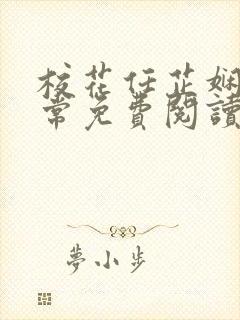 校花任芷娴
常免费閱讀
夢小步